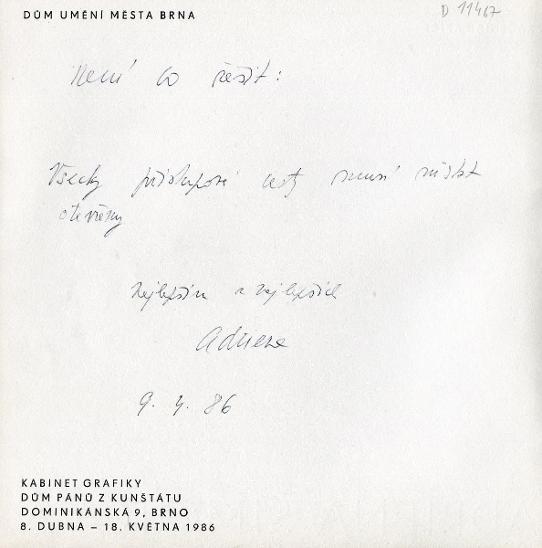 DŮM UMĚNÍ MĚSTA BRNA
D 11467
Není co řešit:
Všecky přístupové cesty musí zůstat
otevřeny
nejlepším z nejlepších
Adriena
9. 4. 86
KABINET GRAFIKY
DŮM PÁNŮ Z KUNŠTÁTU
DOMINIKÁNSKÁ 9, BRNO
8. DUBNA – 18. KVĚTNA 1986